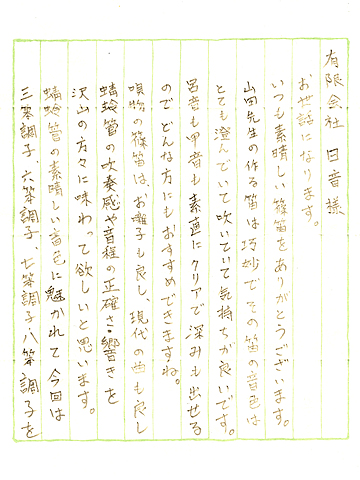 有限会社 日音様
お世話になります。
いつも素晴しい篠笛をありがとうございます。
山田先生の作る笛は巧妙でその笛の音色は
とても澄んでいて吹いていて気持ちが良いです。
呂音も甲音も素直にクリアで深みも出せる
のでどんな方にもおすすめできますね。
唄物の篠笛は、お囃子も良し、現代の曲も良し
蜻蛉笛の吹奏感や音程の正確さ・響きを
沢山の方々に味わって欲しいと思います。
蜻蛉笛の素晴しい音色に魅かれて今回は
三笨調子、六笨調子、七笨調子・八笨調子を